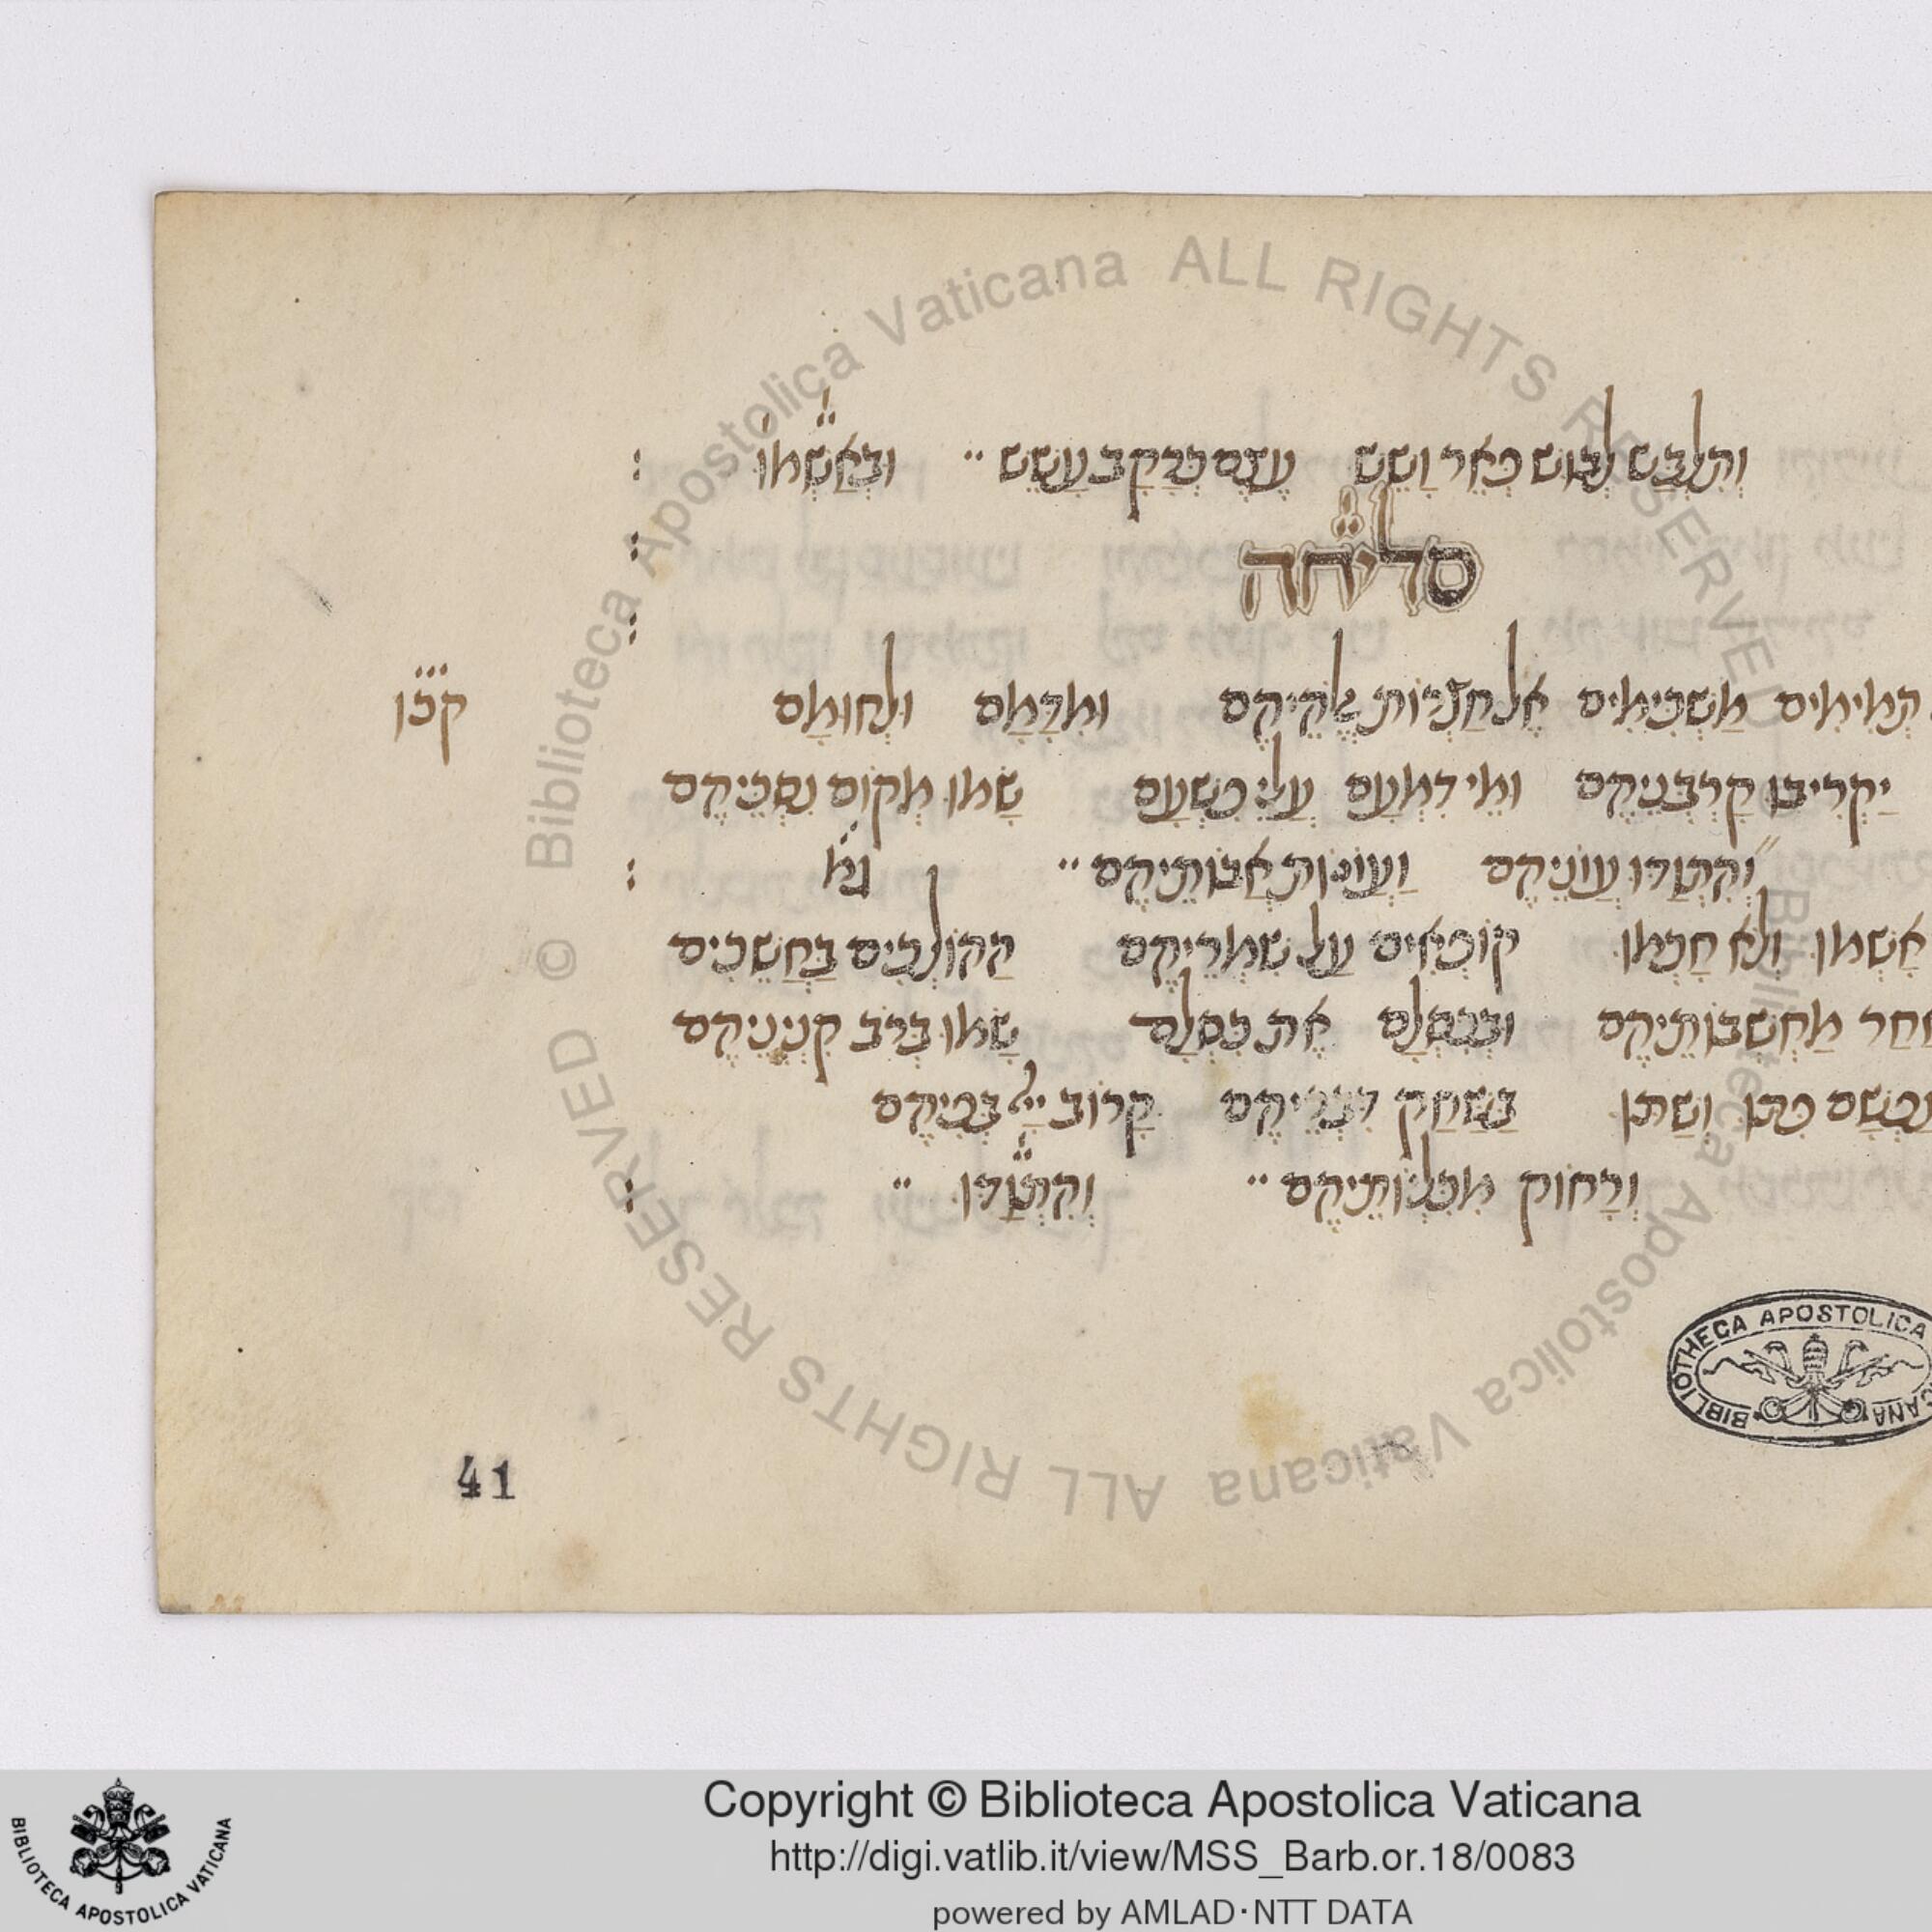 וְתִלְבַּשׁ לְבוּשׁ כְּאֵר וָשֵׁשׁ עֶצֶם כְּרָקָב עָשֵׁשׁ ״ וּבְאַשְׁמוֹ :
סליחה
תְּמִימִים מַשְׁכִּימִים אֶל חַצְרוֹת אֱלֹקֵיהֶם וּמִדָּמָם וּלְחוּמָם קכון
יַקְרִיבוּ קָרְבְּנֵיהֶם וּמֵי דִמְעָם עֲלֵי פִשְׁעָם שָׂמוּ מְקוֹם נִסְכֵּיהֶם
וְהִתְוַדּוּ עֲוֹנֵיהֶם וַעֲוֹנוֹת אֲבוֹתֵיהֶם ״ :
אָשְׁמוּ וְלֹא חָכְמוּ קוֹפְאִים עַל שִׁמְרֵיהֶם הַהוֹלְכִים בַּחֲשֵׁכִים
אַחַר מַחְשְׁבוֹתֵיהֶם וּבְכִסְלָם אֶת כִּסְלָם שָׂמוּ בְּרֹב קִנְיָנֵיהֶם
וְנַפְשָׁם בַּשַּׁחַק דִּבְרֵיהֶם קָרוֹב יְיָ בְּפִיהֶם
וְרָחוֹק מִכִּלְיוֹתֵיהֶם ״ וְהִתְוַדּוּ ״ :
41
BIBLIOTHECA APOSTOLICA VATICANA
© Biblioteca Apostolica Vaticana ALL RIGHTS RESERVED
Biblioteca Apostolica Vaticana ALL RIGHTS RESERVED
BIBLIOTECA APOSTOLICA VATICANA
Copyright © Biblioteca Apostolica Vaticana
http://digi.vatlib.it/view/MSS_Barb.or.18/0083
powered by AMLAD·NTT DATA